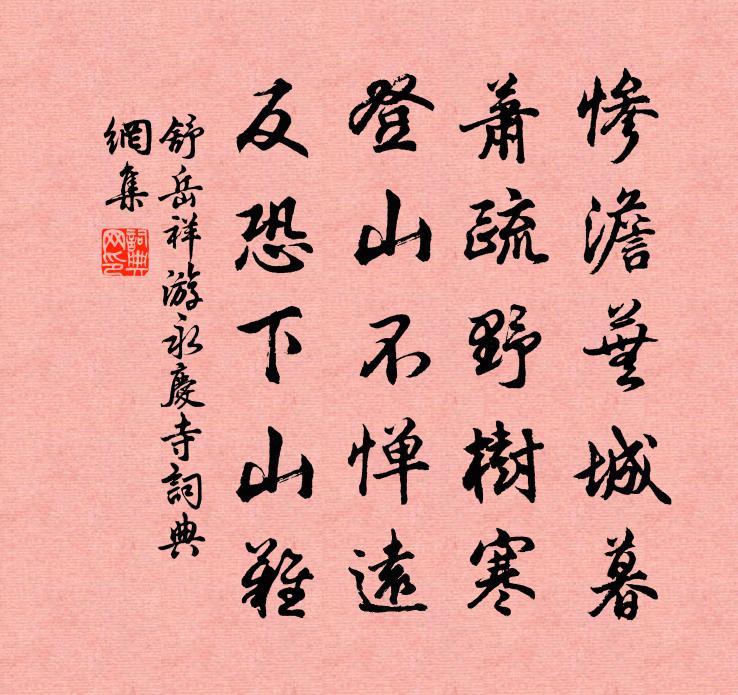 惨澹蕪城暮
蕭疏野樹寒
登山不惮遠
反恐下山難
舒岳祥游永慶寺詞典
網集
詞典网印